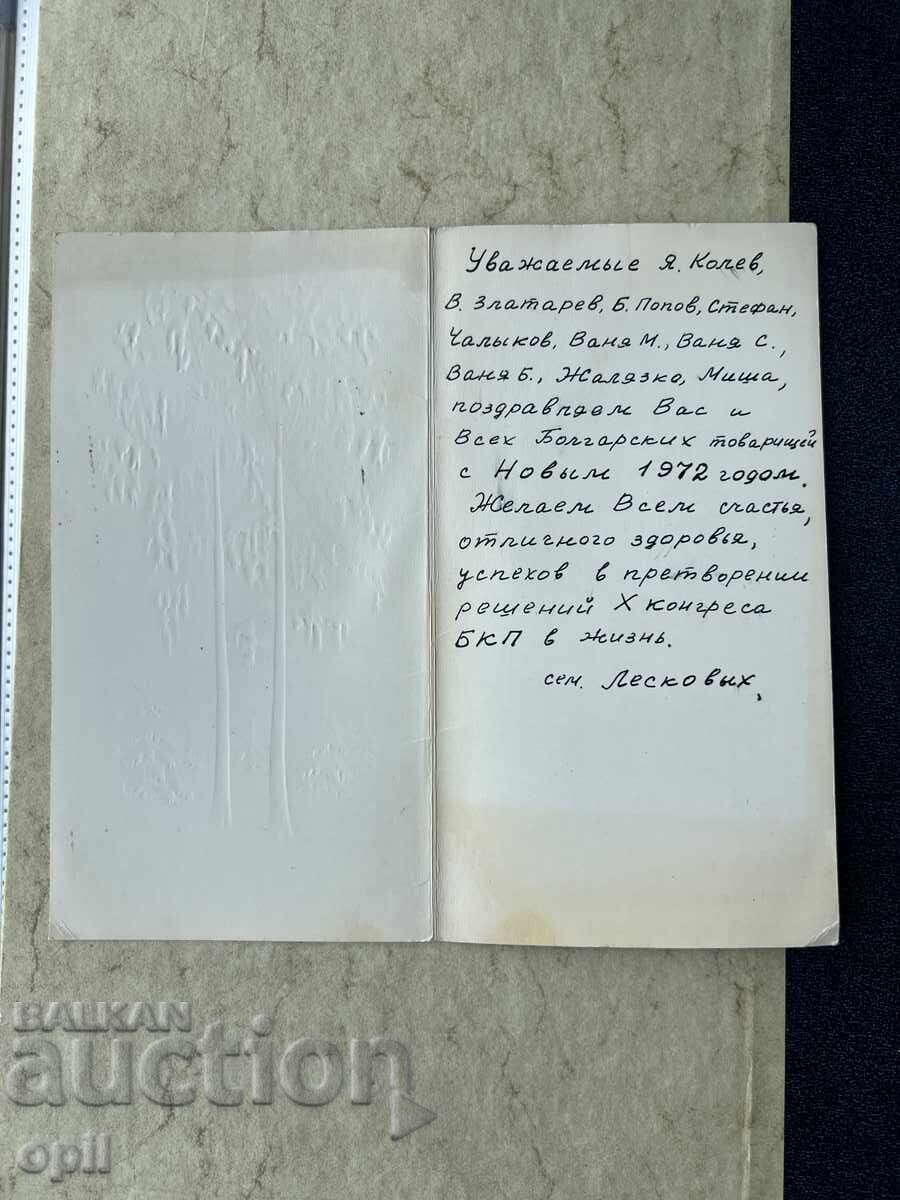 Уважаемые Я. Колев,
В. Златарев, Б. Попов, Стефан,
Чалыков, Ваня М., Ваня С.,
Ваня Б., Жалязко, Миша,
поздравляем Вас и
Всех Болгарских товарищей
с Новым 1972 годом.
Желаем Всем счастья,
отличного здоровья,
успехов в претворении
решений X конгреса
БКП в жизнь.
сем. Лесковых,
BALKAN
auction
opil